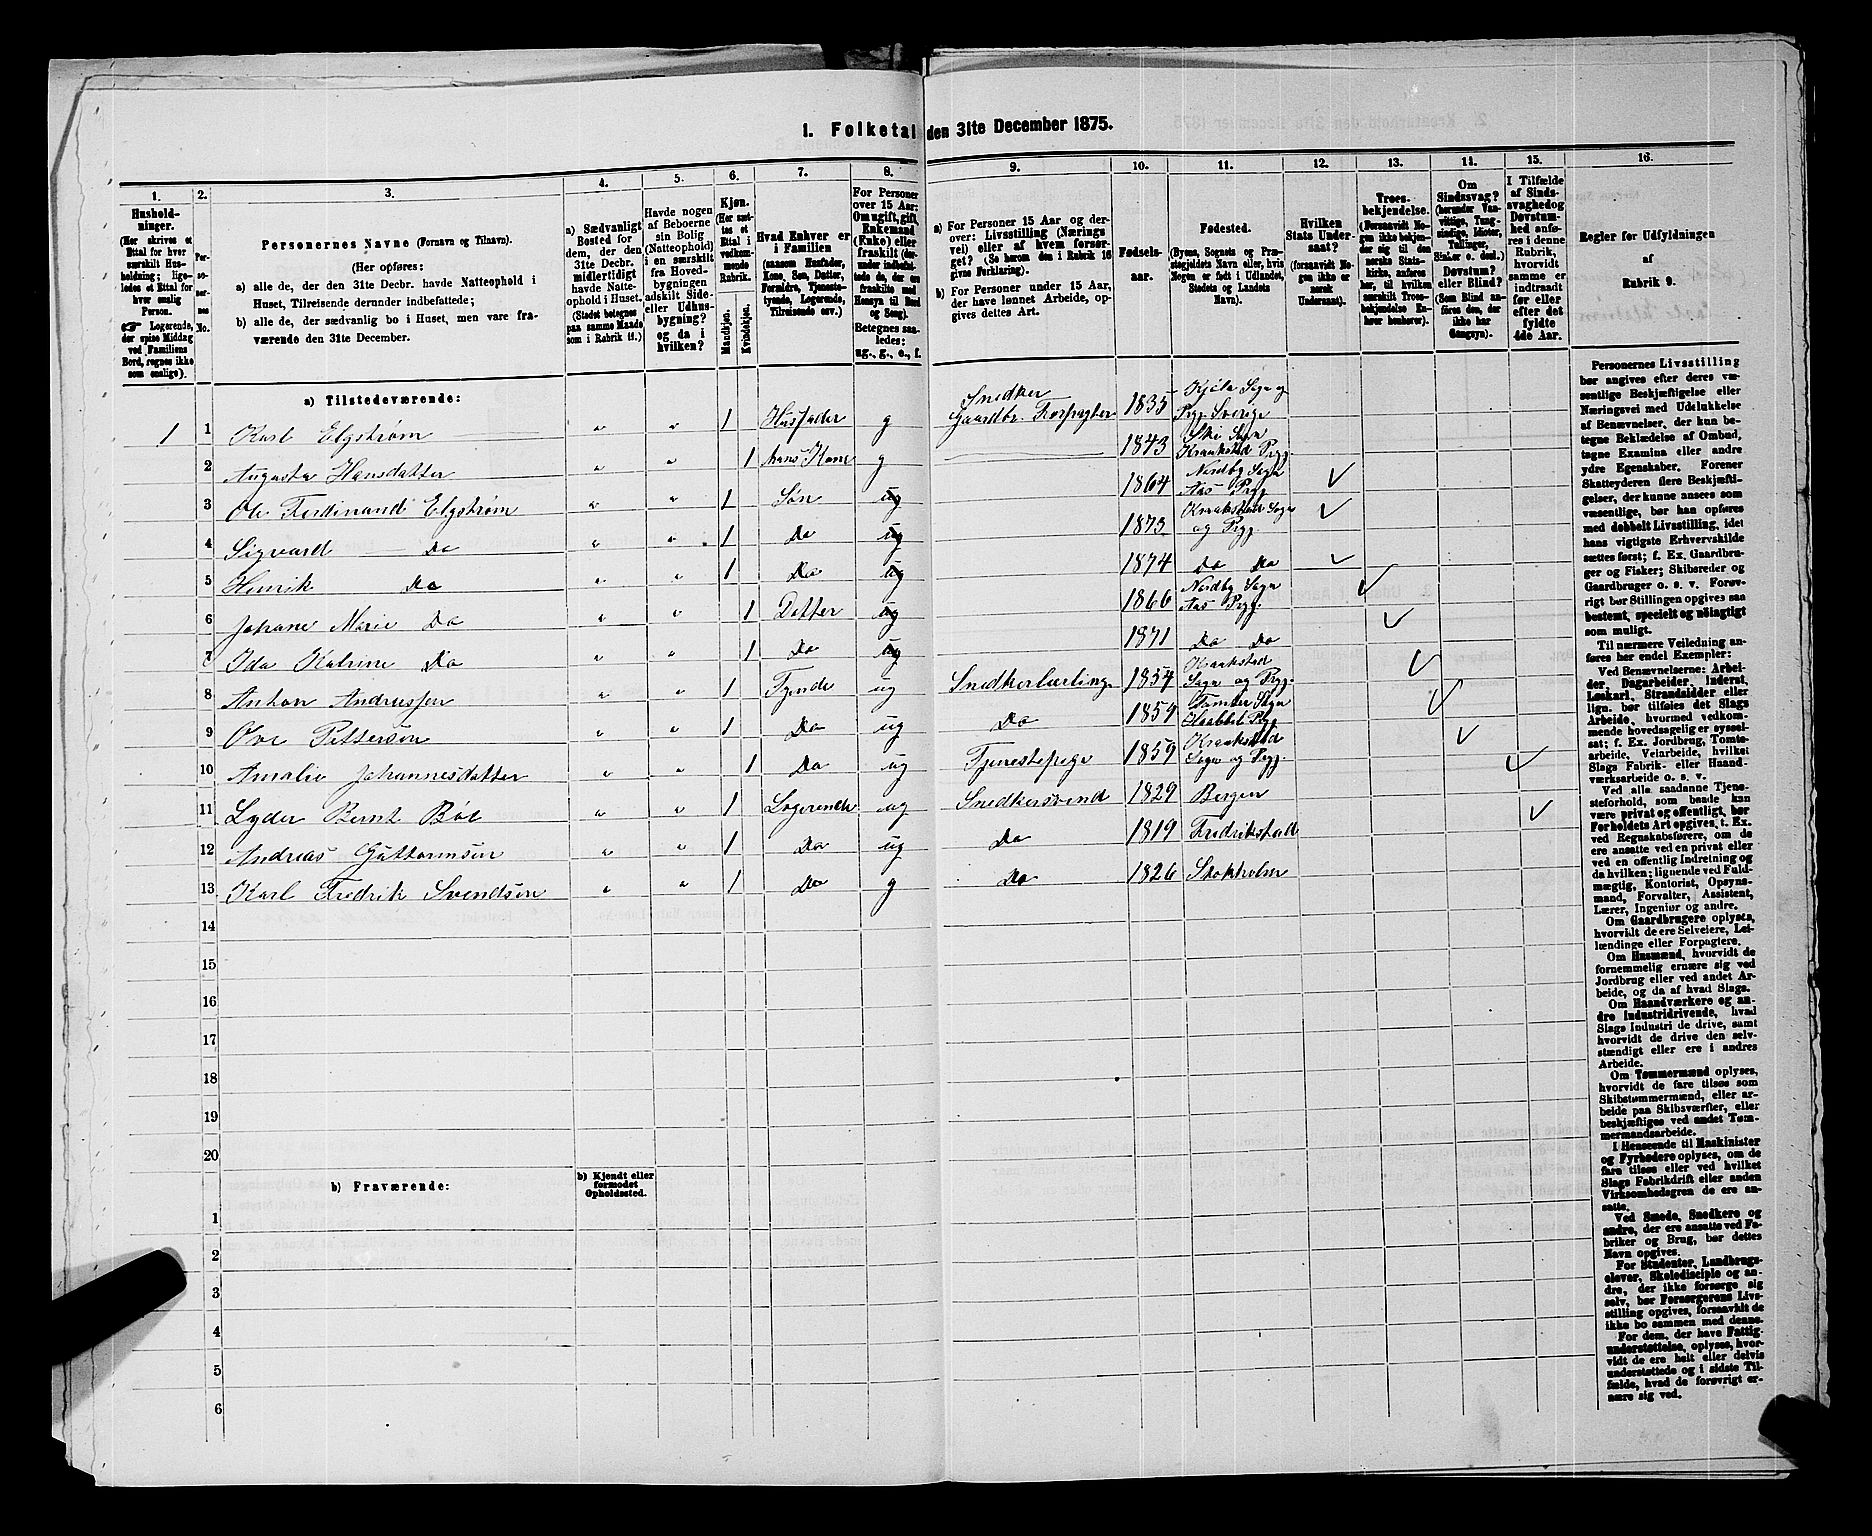 1. Folketal den 31te December 1875.
1. 2. 3. 4. 5. 6. 7. 8. 9. 10. 11. 12. 13. 14. 15. 16.
Hushold-
ninger.
(Her skrives et
Ettal for hver
særskilt Hus-
holdning; lige-
ledes et Ettal
for hver
enslig
Person.
☞ Logerende,
der spise Middag
ved Familiens
Bord, regnes ikke
som enslige).
Per-
so-
ner-
nes
No.
Personernes Navne (Fornavn og Tilnavn).
(Her opføres:
a) alle de, der den 31te Decbr. havde Natteophold i
Huset, Tilreisende derunder indbefattede;
b) alle de, der sædvanlig bo i Huset, men vare fra-
værende den 31te December.
a) Sædvanligt
Bosted for
dem, der den
31te Decbr.
midlertidigt
havde Natte-
ophold i Huset.
(Stedet betegnes
paa samme Maade
som i Rubrik 11.)
Havde nogen
af Beboerne
sin Bolig
(Natteophold)
i en særskilt
fra Hoved-
bygningen
adskilt Side-
eller Udhus-
bygning?
og da i
hvilken?
Kjøn.
(Her sæt-
tes et
Ettal i
vedkom-
mende
Rubrik.
Mandkjøn.
Kvindekjøn.
Hvad Enhver er
i Familien
(saasom Husfader,
Kone, Søn, Datter,
Forældre, Tjeneste-
tyende, Logerende,
Tilreisende osv.)
For Personer
over 15 Aar:
Om ugift, gift,
Enkemand
(Enke) eller
fraskilt (der-
under indbefat-
tede de, der ere
fraskilte med
Hensyn til Bord
og Seng).
Betegnes saa-
ledes:
ug., g., e., f.
a) For Personer 15 Aar og der-
over: Livsstilling (Nærings
vei) eller af hvem forsør-
get? (Se herom den i Rubrik 16
givne Forklaring).
b) For Personer under 15 Aar,
der have lønnet Arbeide, op-
gives dettes Art.
Fødsels-
aar.
Fødested.
(Byens, Sognets og Præ-
stegjeldets Navn eller, hvis
Nogen er født i Udlandet,
Stedets og Landets
Navn).
Hvilken
Stats Under-
saat?
(forsaavidt No-
gen ikke er
norsk
Undersaat).
Troes-
bekjendelse.
(Forsaavidt No-
gen ikke bekjen-
der sig til den
norske Stats-
kirke, anføres
her, til hvilken
særskilt Troes-
bekjendelse En-
hver henhører).
Om
Sindssvag?
(herunder Van-
vittige, Tung-
sindige, Idioter,
Tullinger,
Sinker o. desl.)
Døvstum?
eller Blind?
(Som Blind an-
føres den, der
ikke har
Gangsyn).
I Tilfælde
af Sinds-
svaghed og
Døvstum-
hed anfø-
res i denne
Rubrik,
hvorvidt
samme er
indtraadt
før eller
efter det
fyldte
4de Aar.
Regler for Udfyldningen
af
Rubrik 9.
a) Tilstedeværende:
1 1 Karl Elgstrøm „ „ 1 Husfader g Snedker Gaardbr. Forpagter 1835 Kjöla Sogn og Prgj. Sverige
2 Augusta Hansdatter „ „ 1 hans Kone g 1843 Ski Sogn Kraakstad Prgj.
3 Ole Ferdinand Elgstrøm „ „ 1 Søn ug 1864 Nordby Sogn Aas Prgj. ✓
4 Sigvard Do „ „ 1 Do ug 1873 Kraakstad Sogn og Prgj. ✓
5 Henrik Do „ „ 1 Do ug 1874 Do Do ✓
6 Johane Marie Do „ „ 1 Datter ug 1866 Nordby Sogn Aas Prgj. ✓
7 Ida Katrine Do „ „ 1 Do ug 1871 Do Do ✓
8 Anton Andreassen „ „ 1 Tjende ug Snedkerlærling 1854 Kraakstad Sogn og Prgj. ✓
9 Ove Pettersen „ „ 1 Do ug Do 1859 Tomter Sogn Haabbel Prgj. ✓
10 Amalie Johannesdatter „ „ 1 Do ug Tjenestepige 1859 Kraakstad Sogn og Prgj. ✓
11 Lyder Bernt Böe „ „ 1 Logerende ug Snedkersvend 1829 Bergen ✓
12 Andreas Guttormsen „ „ 1 Do ug Do 1819 Fredrikshald ✓
13 Karl Fredrik Svendsen „ „ 1 Do g Do 1826 Stokholm
14
15
16
17
18
19
20
b) Fraværende:
b) Kjendt eller
formodet
Opholdssted.
1
2
3
4
5
6
Personernes Livsstilling
bør angives efter deres væ-
sentlige Beskjæftigelse eller
Næringsvei med Udelukkelse
af Benævnelser, der kun be-
tegne Beklædelse af Ombud,
tagne Examina eller andre
ydre Egenskaber. Forener
Skatteyderen flere Beskjæfti-
gelser, der kunne ansees som
væsentlige, bør han opføres
med dobbelt Livsstilling, idet
hans vigtigste Erhvervskilde
sættes først; f. Ex. Gaardbru-
ger og Fisker; Skibsreder og
Gaardbruger o. s. v. Forøv-
rigt bør Stillingen opgives saa
bestemt, specielt og nøiagtigt
som muligt.
Til nærmere Veiledning an-
føres her endel Exempler:
Ved Benævnelserne: Arbei-
der, Dagarbeider, Inderst,
Løskarl, Strandsidder eller
lign. bør tilføies det Slags
Arbeide, hvormed vedkom-
mende hovedsagelig er syssel-
sat; f. Ex. Jordbrug, Tomte-
arbeide, Veiarbeide, hvilket
Slags Fabrik- eller Haand-
værksarbeide o. s. v.
Ved alle saadanne Tjene-
steforhold, som baade kan
være privat og offentligt, bør
Forholdets Art opgives, t. Ex.
ved Regnskabsførere, om de
ere ansatte ved en privat eller
ved en offentlig Indretning og
da hvilken; lignende ved Fuld-
mægtig, Kontorist, Opsyns-
mand, Forvalter, Assistent,
Lærer, Ingeniør og andre.
Om Gaardbrugere oplyses,
hvorvidt de ere Selveiere, Lei-
lændinge eller Forpagtere.
Om Husmænd, hvorvidt de
fornemmelig ernære sig ved
Jordbrug eller ved andet Ar-
beide, og da af hvad Slags.
Om Haandværkere og an-
dre Industridrivende, hvad
Slags Industri de drive, samt
hvorvidt de drive den selv-
stændigt eller ere i andres
Arbeide.
Om Tømmermænd oplyses,
hvorvidt de fare tilsøs som
Skibstømmermænd, eller ar-
beide paa Skibsværfter, eller
beskjæftiges ved andet Tøm-
mermandsarbeide.
I Henseende til Maskinister
og Fyrbødere oplyses, om de
fare tilsøs eller ved hvilket
Slags Fabrikdrift eller anden
Virksomhedsgren de ere an-
satte.
Ved Smede, Snedkere og
andre, der ere ansatte ved Fa-
briker og Brug, bør dettes
Navn opgives.
For Studenter, Landbrugs-
elever, Skoledisciple og an-
dre, der ikke forsørge sig
selv, bør Forsørgerens Livs-
stilling opgives, forsaavidt de
ikke bo sammen med denne.
For dem, der have Fattig-
understøttelse, oplyses, hvor-
vidt de ere helt eller delvis
understøttede og i sidste Til-
fælde, hvad de forøvrigt er-
nære sig ved.